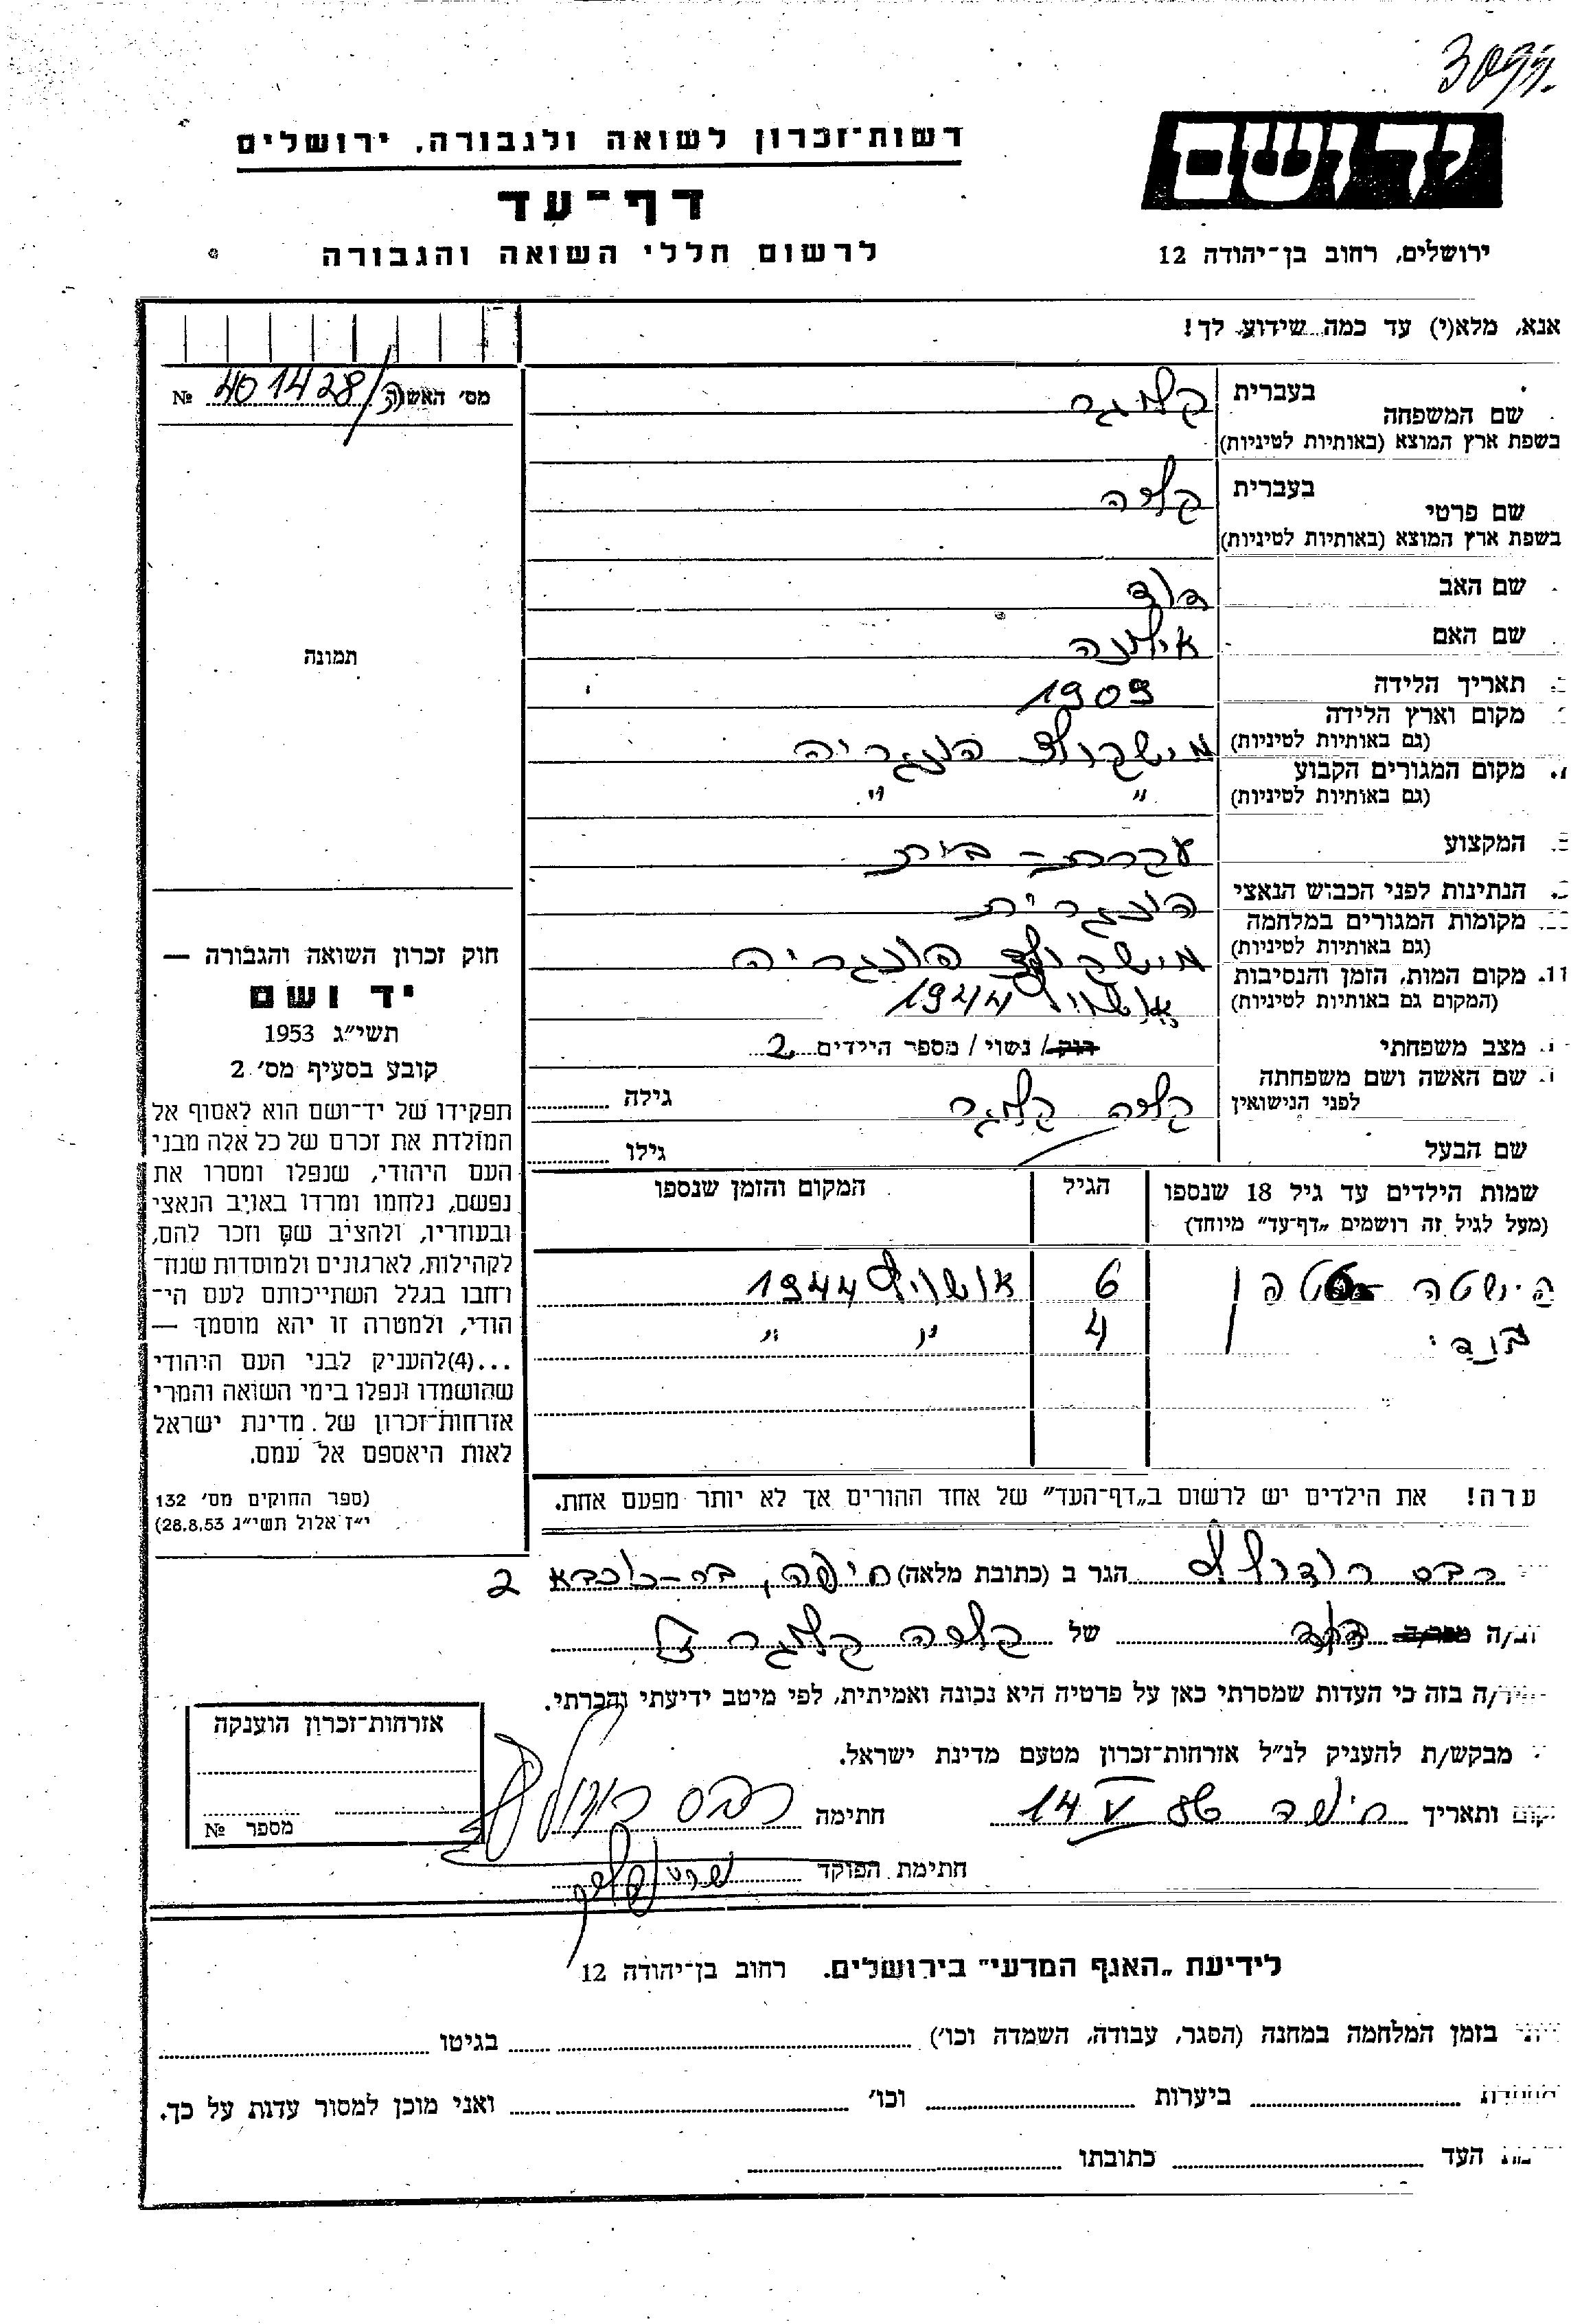 יד ושם
רשות־זכרון לשואה ולגבורה, ירושלים
דף־עד
לרשום חללי השואה והגבורה
ירושלים, רחוב בן־יהודה 12
אנא, מלא(י) עד כמה שידוע לך!
מס׳ האשה 401428 №
בעברית
שם המשפחה
בשפת ארץ המוצא (באותיות לטיניות)
בעברית
שם פרטי קלרה
בשפת ארץ המוצא (באותיות לטיניות)
שם האב דוד
שם האם אילונה
תאריך הלידה 1909
מקום וארץ הלידה
(גם באותיות לטיניות) מישקולץ הונגריה
מקום המגורים הקבוע
(גם באותיות לטיניות) " "
המקצוע עקרת-בית
הנתינות לפני הכבוש הנאצי הונגרית
מקומות המגורים במלחמה
(גם באותיות לטיניות) מישקולץ הונגריה
11. מקום המות, הזמן והנסיבות
(המקום גם באותיות לטיניות) אושויץ 1944
מצב משפחתי רוק / נשוי / מספר הילדים 2
שם האשה ושם משפחתה
לפני הנישואין קלרה גילה
שם הבעל גילו
שמות הילדים עד גיל 18 שנספו הגיל המקום והזמן שנספו
(מעל לגיל זה רושמים „דף־עד" מיוחד)
6 אושויץ 1944
4 " "
תמונה
חוק זכרון השואה והגבורה —
יד ושם
תשי״ג 1953
קובע בסעיף מס׳ 2
תפקידו של יד־ושם הוא לאסוף אל
המולדת את זכרם של כל אלה מבני
העם היהודי, שנפלו ומסרו את
נפשם, נלחמו ומרדו באויב הנאצי
ובעוזריו, ולהציב שם וזכר להם,
לקהילות, לארגונים ולמוסדות שנח־
רחבו בגלל השתייכותם לעם הי־
הודי, ולמטרה זו יהא מוסמך —
...(4)להעניק לבני העם היהודי
שהושמדו ונפלו בימי השואה והמרי
אזרחות־זכרון של מדינת ישראל
לאות היאספם אל עמם.
(ספר החוקים מס׳ 132
י״ז אלול תשי״ג 28.8.53)
ערה! את הילדים יש לרשום ב„דף־העד" של אחד ההורים אך לא יותר מפעם אחת.
רבס רודולף הגר ב (כתובת מלאה) חיפה, בר-כוכבא 2
דוד של קלרה
ה בזה כי העדות שמסרתי כאן על פרטיה היא נכונה ואמיתית, לפי מיטב ידיעתי והכרתי.
מבקש/ת להעניק לנ״ל אזרחות־זכרון מטעם מדינת ישראל.
ותאריך חיפה 14 V חתימה רבס רודולף
חתימת הפוקד
אזרחות־זכרון הוענקה
מספר №
לידיעת „האגף המדעי" בירושלים. רחוב בן־יהודה 12
בזמן המלחמה במחנה (הסגר, עבודה, השמדה וכו׳) בגיטו
ביערות וכו׳ ואני מוכן למסור עדות על כך.
העד כתובתו